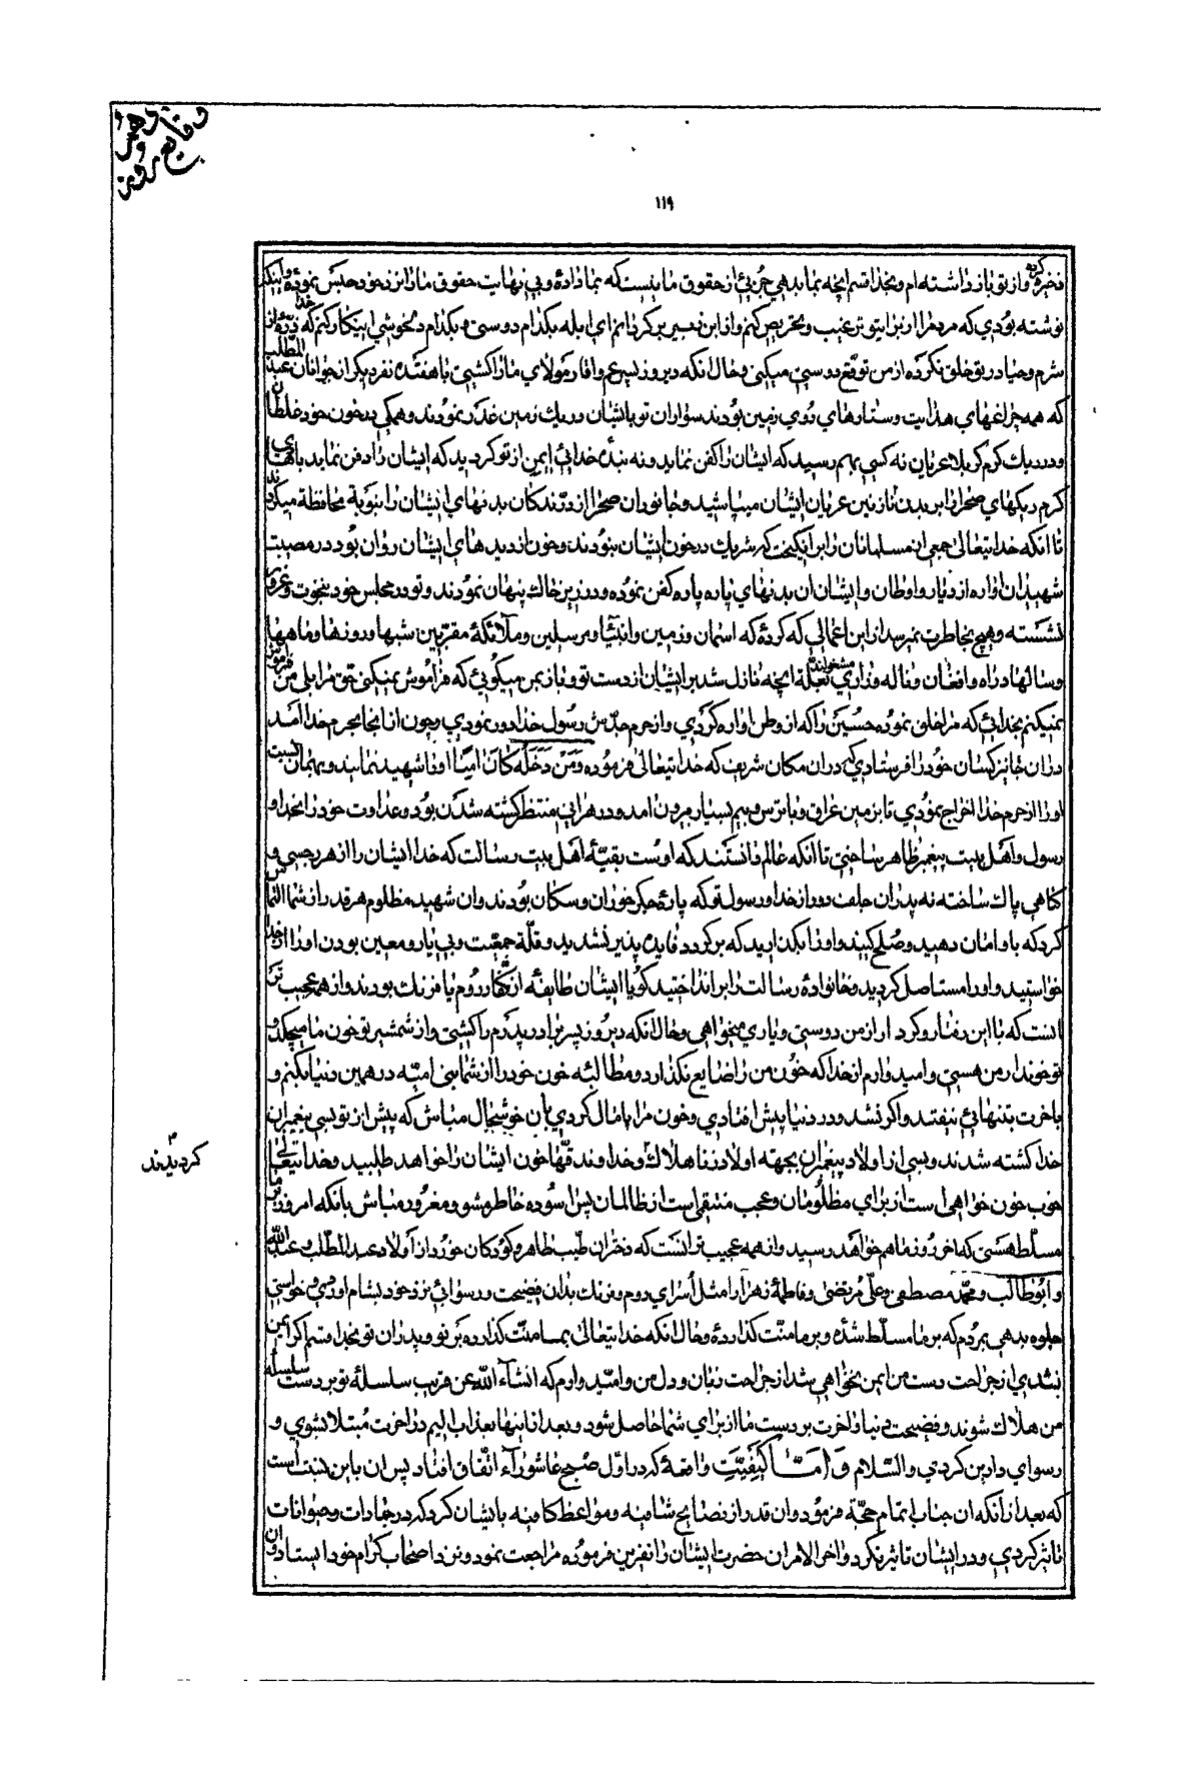 وقایع روز
دهم
۱۱۹
ذخیره کرده و از تو باز داشته‌ام و بخدا قسم آنچه بما بدهی جزئی از حقوق ما نیست که بما داده و بی نهایت حقوق ما را نزد خود حبس نموده و اینکه
نوشته بودی که مردم را از برای تو ترغیب و تحریص کنم و از ابن زبیر برگردانم ای ابله بکدام دوستی و بکدام دلخوشی اینکار کنم که خدا ذرّهٔ از
شرم و حیا در تو خلق نکرده از من توقع دوستی میکنی و حال آنکه دیروز پسر عمّ و اقا و مولای ما را کشتی با هفده نفر دیگر از جوانان عبد المطّلب
که همه چراغهای هدایت و ستارهای روی زمین بودند سواران تو بایشان در یک زمین غدر نمودند و همگی در خون خود غلطان
و در ریک گرم کربلا عریان نه کسی بهم رسید که ایشان را کفن نماید و نه بندهٔ خدائی ایمن از تو گردید که ایشان را دفن نماید بادهای
گرم ریکهای صحرا را بر بدن نازنین عریان ایشان میپاشید و جانوران صحرا از درّندکان بدنهای ایشان را بنوبة محافظة میکردند
تا آنکه خدا یتعالی جمعی از مسلمانان را برانگیخت که شریک در خون ایشان نبودند و خون از دیدهای ایشان روان بود در مصیبت
شهیدان آواره از دیار و اوطان و ایشان آن بدنهای پاره پاره کفن نموده و در زیر خاک پنهان نمودند و تو در مجلس خود بنخوت و غرور
نشسته و هیچ بخاطرت نمیرسد از این اعمالی که کردهٔ که آسمان و زمین و انبیآء و مرسلین و ملآئکهٔ مقرّبین شبها و روزها و ماهها
و سالها در آه و افغان و ناله و زاری مشغولند بعلّة آنچه نازل شد بر ایشان از دست تو و باز بمن میگوئی که فراموش نمیکنی حق مرا بلی من فراموش
نمیکنم بخدائی که مرا خلق نموده حسین را که از وطن آواره کردی و از حرم جدّش رسول خدا دور نمودی و چون از آنجا بحرم خدا آمد
در آن جا نیز کسان خود را فرستادی که در آن مکان شریف که خدا یتعالی فرموده وَمَنْ دَخَلَهُ كانَ آمِنًا او را شهید نمایند و بهمان نسبت
او را از حرم خدا اخراج نمودی تا بزمین عراق و با ترس و بیم بسیار بیرون آمد و در هر آنی منتظر کشته شدن بود و عداوت خود را بخدا و
رسول و اهل بیت پیغمبر ظاهر ساختی تا آنکه عالم دانستند که اوست بقیّهٔ اهل بیت رسالت که خدا ایشان را از هر رجسی و
گناهی پاک ساخته نه پدران جلف دور از خدا و رسول تو که پارهٔ جگر خوران و سگان بودند و آن شهید مظلوم هر قدر از شما التماس
کرد که باو امان دهید و صلح کنید و او را بگذارید که برگردد فایده پذیر نشدید و قلّة جمعیّت و بی یار و معین بودن او را از خدا
خواستید و او را مستاصل کردید و خانوادهٔ رسالت را برانداختید گویا ایشان طایفهٔ از کفّار روم یا فرنک بودند و از همه عجیب تر
آنست که با این رفتار و کردار از من دوستی و یاری میخواهی و حال آنکه دیروز پسر برادر پدرم را کشتی و از شمشیر تو خون ما میچکد و
تو خوندار من هستی و امید وارم از خدا که خون من را ضایع نگذارد و مطالبهٔ خون خود را از شما بنی امیّه در همین دنیا بکنم و
باخرت بتنهائی نیفتد و اگر نشد و در دنیا پیش افتادی و خون مرا پامال کردی بآن خوشحال مباش که پیش از تو بسی پیغمبران
خدا کشته شدند و بسی از اولاد پیغمبران بجهة اولاد زنا هلاک گردیدند و خداوند قهّار خون ایشان را خواهد طلبید و خدا یتعالی
خوب خون خواهی است از برای مظلومان و عجب منتقمی است از ظالمان پس آسوده خاطر مشو و مغرور مباش بآنکه امروز بر ما
مسلّط هستی که آخر روز ما هم خواهد رسید و از همه عجیب تر آنست که دختران طیّب طاهر و کودکان خورد از اولاد عبد المطّلب و عبد الله
و ابوطالب و محمّد مصطفی و علی مرتضی و فاطمهٔ زهرا را مثل اسرای روم و فرنک بدان فضیحت و رسوائی نزد خود بشام اوردی و خواستی
جلوه بدهی بمردم که بر ما مسلّط شدهٔ و بر ما منّت گذاردهٔ و حال آنکه خدا یتعالی بما منّت گذارده بر تو و پدران تو بخدا قسم اگر ایمن
شدی از جراحت دست من ایمن نخواهی شد از جراحت زبان و دل من و امّید وارم که انشآء اللّه عن قریب سلسلهٔ تو بر دست سلسلهٔ
من هلاک شوند و فضیحت دنیا و اخرت بر دست ما از برای شما حاصل شود و بعد از اینها بعذاب الیم در اخرت مبتلا بشوی و
رسوای دارین کردی و السّلام وَ امّا کیفیّت واقعهٔ که در اوّل صبح عاشورآء اتّفاق افتاد پس آن باین هیئت است
که بعد از آنکه آن جناب اتمام حجّة فرمود و آن قدر از نصایح شافیه و مواعظ کافیه بایشان کرد که در جمادات و حیوانات
تاثیر کردی و در ایشان تاثیر نکرد و اخر الامر آن حضرت ایشان را نفرین فرموده مراجعت نمود و نزد اصحاب کرام خود ایستاد و آن
گردیدند